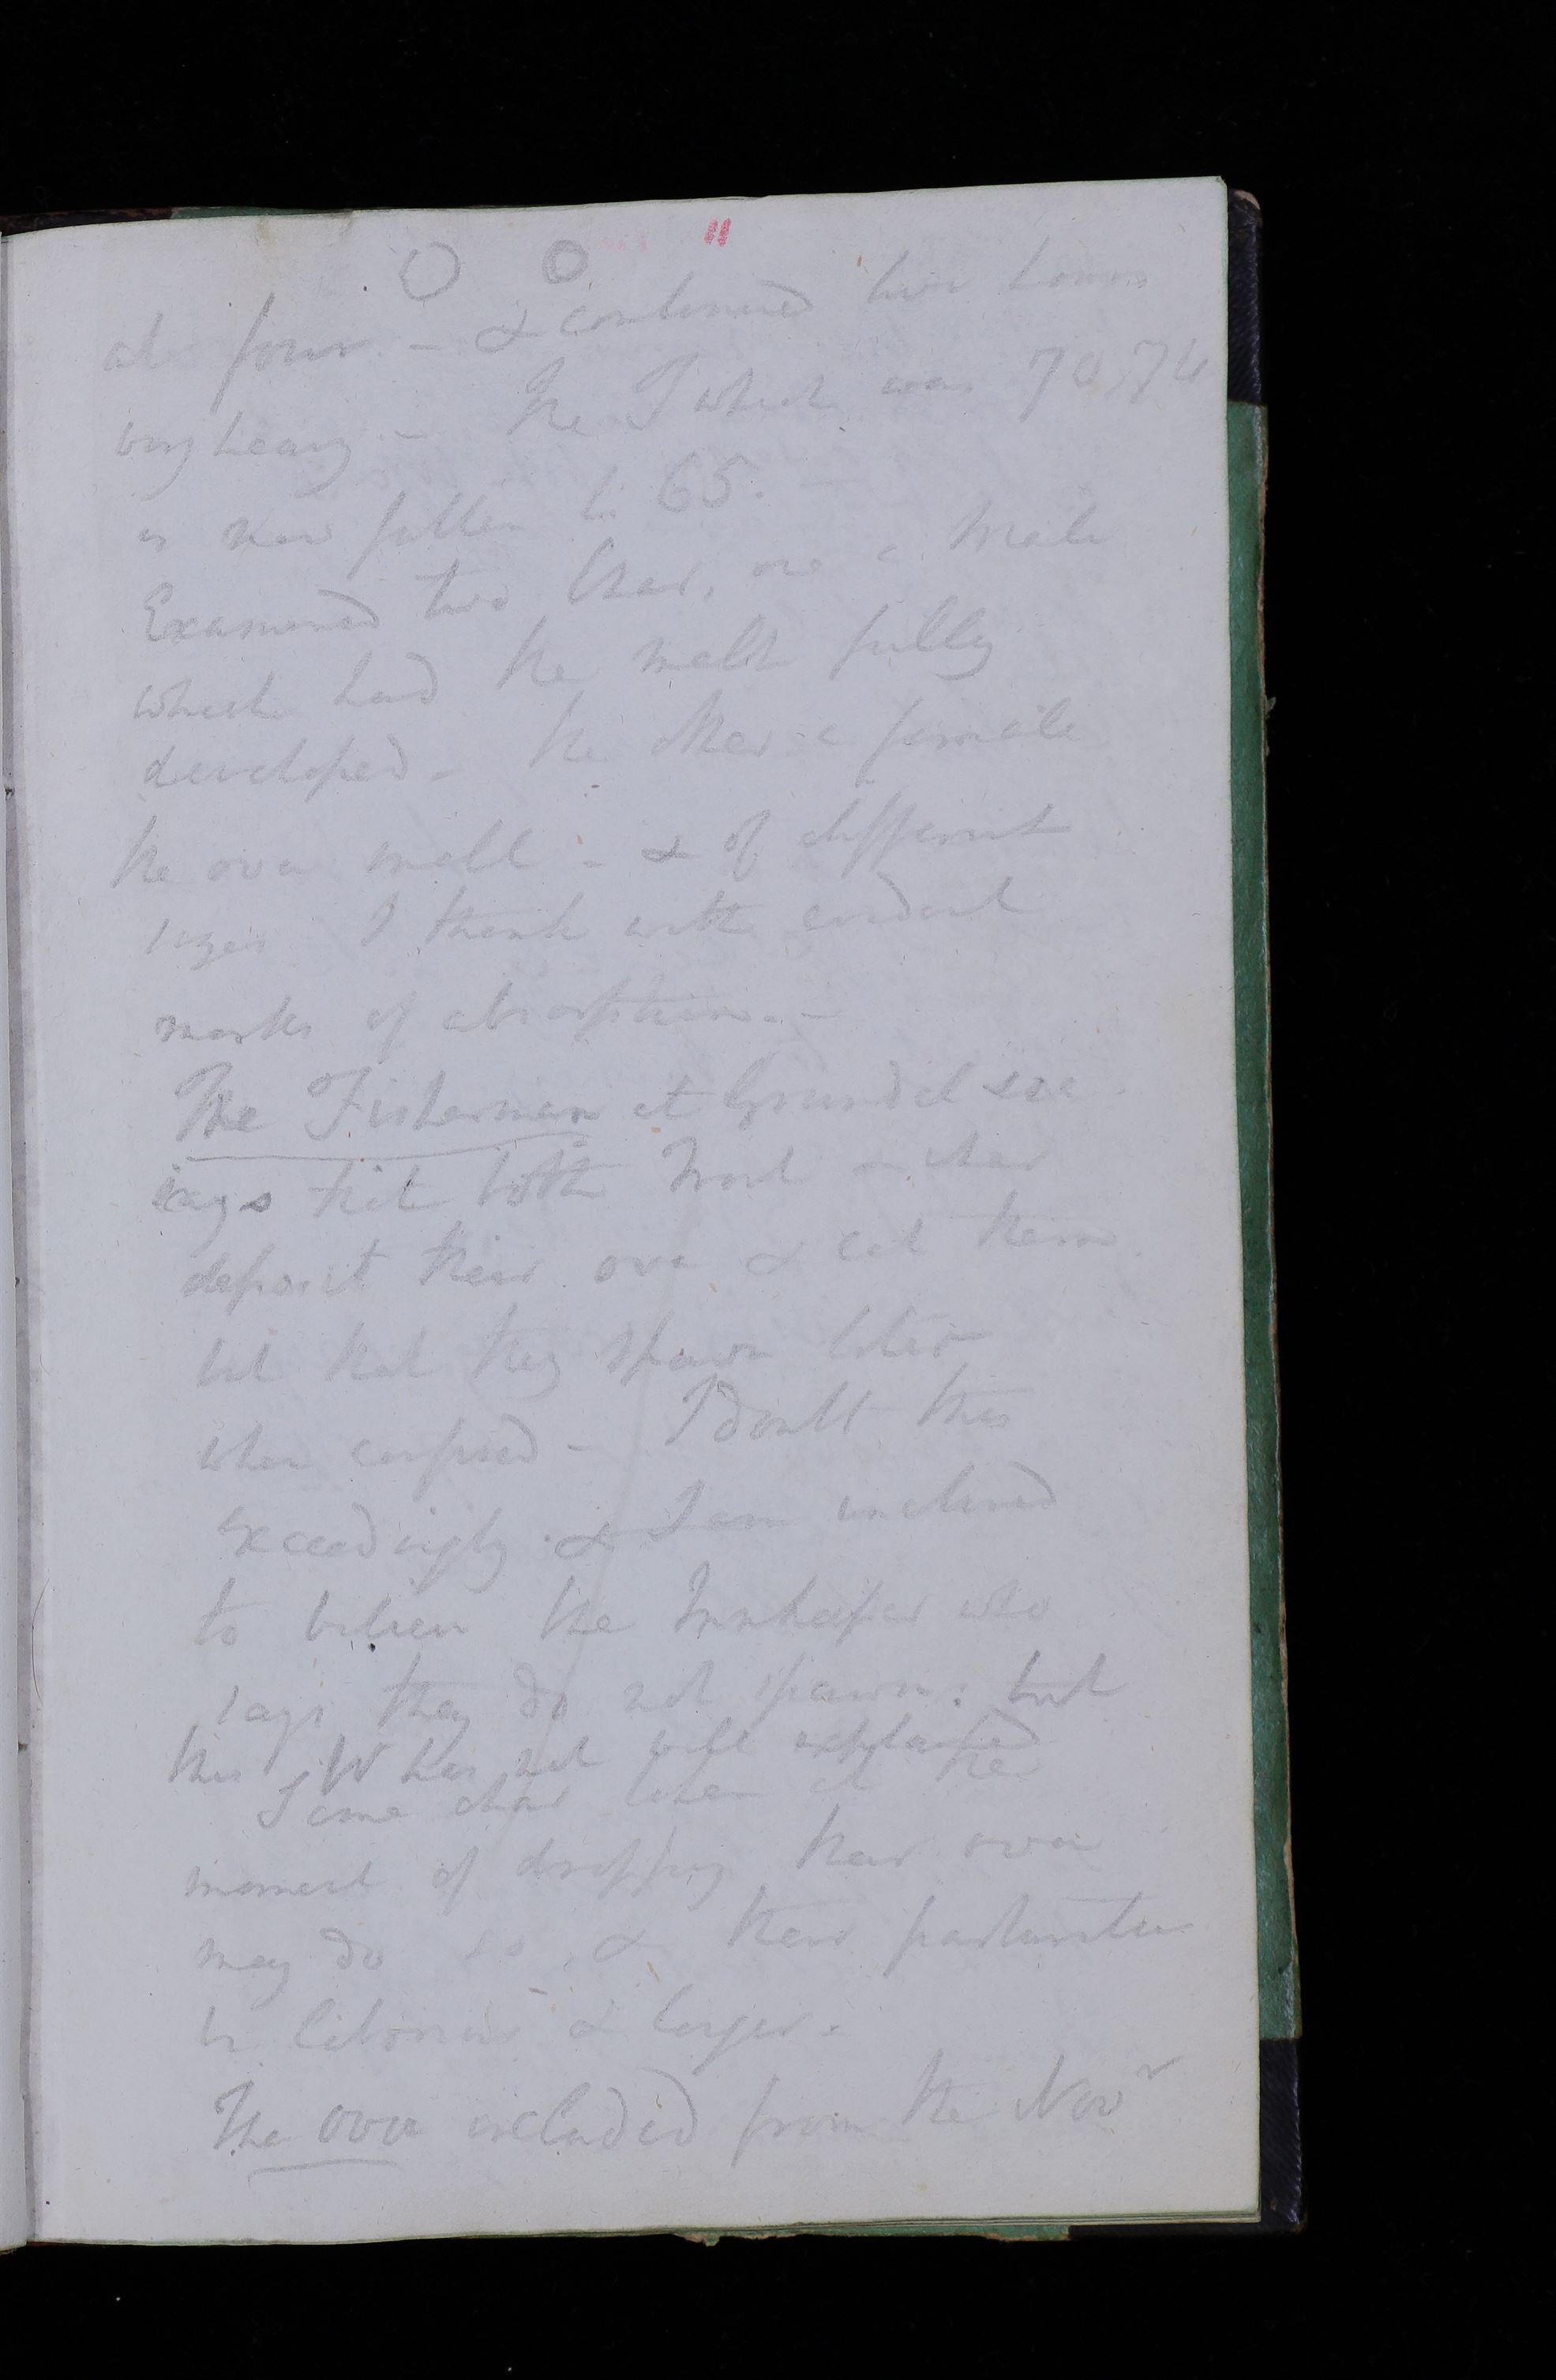 11
at four - & continued two hours
very heavy - The T which was 70, 74
is now fallen to 65. -
Examined two Char, one a male
which had the melt fully
developed - the other a female
the ova small - & of different
sizes I think with evident
marks of absorption. -
The Fisherman at Grundel see
says that both Trout & char
deposit their ova & eat them
but that they spawn later
when confined - I doubt this
exceedingly & I am inclined
to believe the Innkeeper who
says they do not spawn. but
this W has not well explained
Some char when at the
moment of dropping their ova
may do so, &  their parturition
be laborious & longer -
The ova excluded from the Nov^r